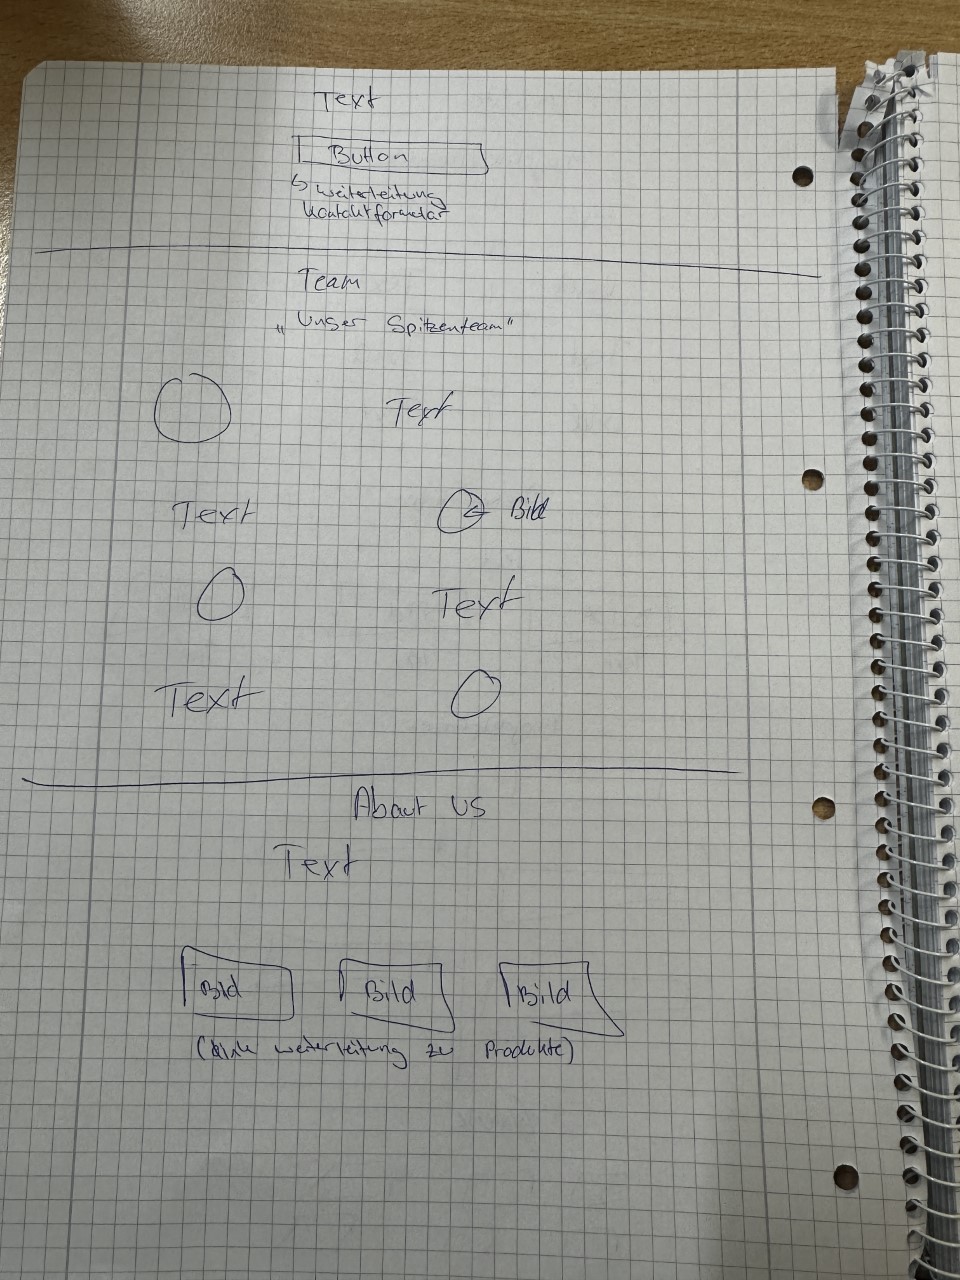 Text
Button
↳ weiterleitung
Kontaktformular
Team
„Unser Spitzenteam"
Text
Text
Bild
Text
Text
About us
Text
Bild Bild Bild
weiterleitung zu Produkte)